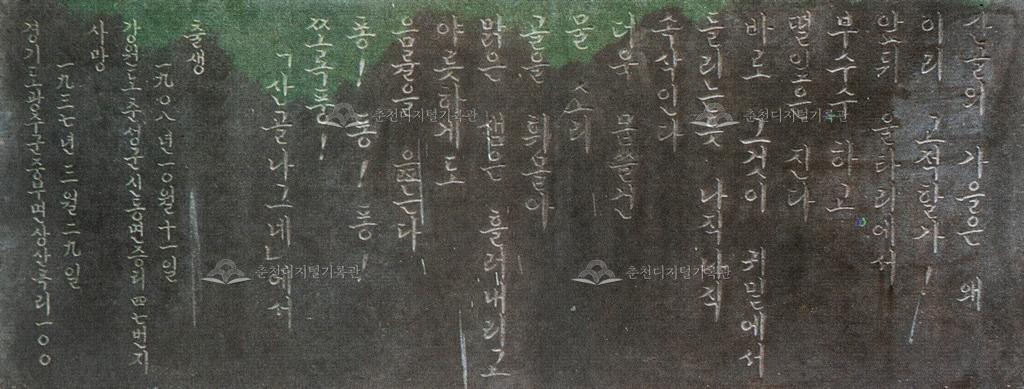 산골의 가을은 왜
이리 고적할가!
앞뒤 울타리에서
부수수 하고
떨잎은 진다
바로 그것이 귀밑에서
들리는듯 나직나직
속삭인다
더욱 몹쓸건
물 소리
골을 휘몰아
맑은 샘은 흘러내리고
야릇하게도
음률을 읊는다
퐁! 퐁! 퐁!
쪼록퐁!
「산골나그네」에서
출생
一九〇八년一〇월十一일
강원도춘성군신동면증리四七번지
사망
一九三七년三월二九일
경기도광주군중부면상산곡리一〇〇
춘천디지털기록관
춘천디지털기록관
춘천디지털기록관
춘천디지털기록관